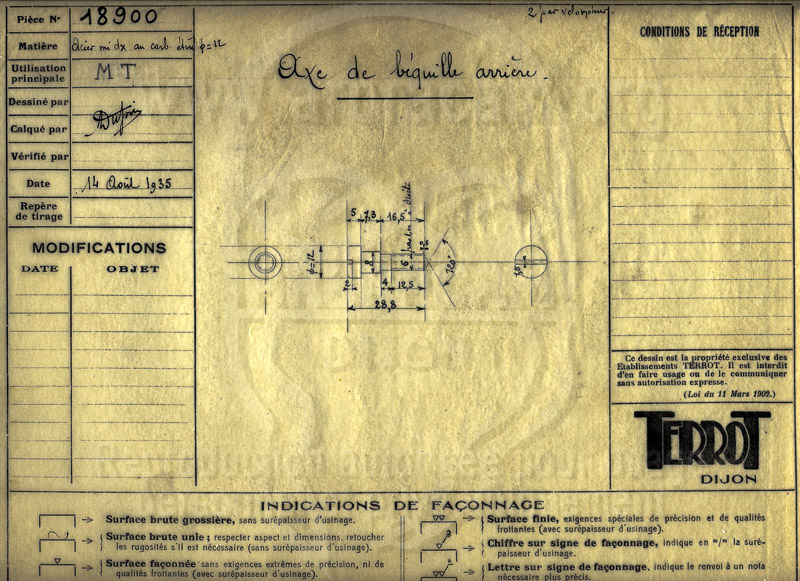 Pièce N° 18900
2 par vélomoteur.
Matière Acier mi dx au carb. étiré φ=12
Utilisation
principale MT
Axe de béquille arrière.
Dessiné par
Calqué par
Vérifié par
Date 14 Août 1935
Repère
de tirage
MODIFICATIONS
DATE OBJET
5 7,3 16,5
φ=12
8
6
120°
1,5
2
4 12,5
28,8
CONDITIONS DE RÉCEPTION
Ce dessin est la propriété exclusive des
Etablissements TERROT. Il est interdit
d'en faire usage ou de le communiquer
sans autorisation expresse.
(Loi du 11 Mars 1902.)
TERROT
DIJON
INDICATIONS DE FAÇONNAGE
Surface brute grossière, sans surépaisseur d'usinage.
Surface brute unie ; respecter aspect et dimensions, retoucher
les rugosités s'il est nécessaire (sans surépaisseur d'usinage).
Surface façonnée sans exigences extrêmes de précision, ni de
qualités frottantes (avec surépaisseur d'usinage).
Surface finie, exigences spéciales de précision et de qualités
frottantes (avec surépaisseur d'usinage).
Chiffre sur signe de façonnage, indique en "/" la suré-
paisseur d'usinage.
Lettre sur signe de façonnage, indique le renvoi à un nota
nécessaire plus précis.